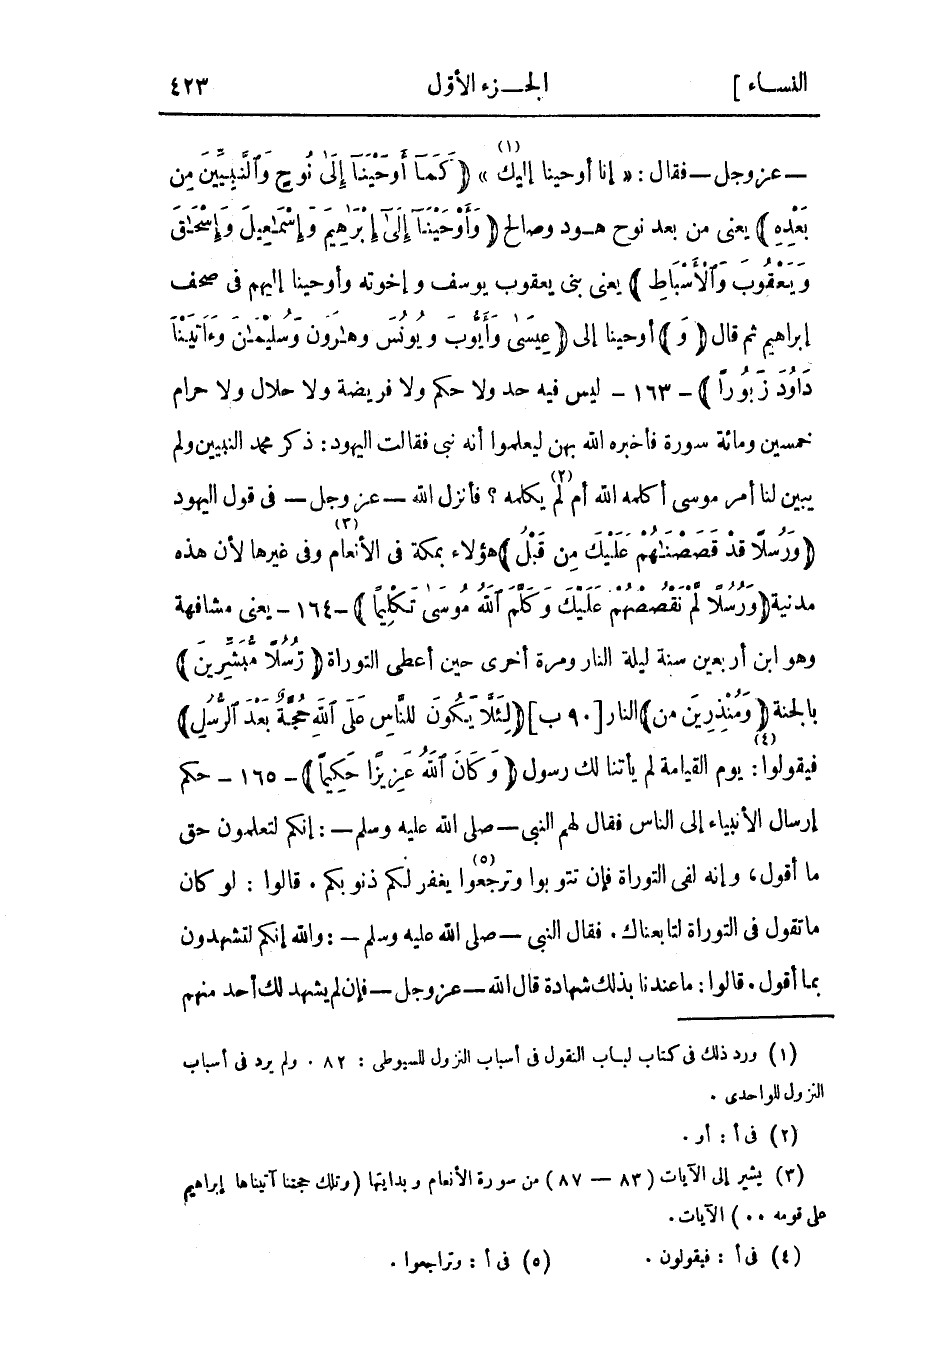 النساء ] الجزء الأول ٤٢٣
— عز وجل — فقال : « إنا أوحينا إليك (١) » ( كَمَآ أَوْحَيْنَآ إِلَىٰ نُوحٍ وَٱلنَّبِيِّينَ مِن
بَعْدِهِ ) يعنى من بعد نوح هود وصالح ( وَأَوْحَيْنَآ إِلَىٰٓ إِبْرَٰهِيمَ وَإِسْمَٰعِيلَ وَإِسْحَٰقَ
وَيَعْقُوبَ وَٱلْأَسْبَاطِ ) يعنى بنى يعقوب يوسف و إخوته وأوحينا إليهم فى صحف
إبراهيم ثم قال ( وَ ) أوحينا إلى ( عِيسَىٰ وَأَيُّوبَ وَيُونُسَ وَهَٰرُونَ وَسُلَيْمَٰنَ وَءَاتَيْنَا
دَاوُدَ زَبُورًا ) — ١٦٣ — ليس فيه حد ولا حكم ولا فريضة ولا حلال ولا حرام
خمسين ومائة سورة فأخبره الله بهن ليعلموا أنه نبى فقالت اليهود : ذكر محمد النبيين ولم
يبين لنا أمر موسى أكلمه الله أم (٢) لم يكلمه ؟ فأنزل الله — عز وجل — فى قول اليهود
( وَرُسُلًا قَدْ قَصَصْنَٰهُمْ عَلَيْكَ مِن قَبْلُ ) هؤلاء بمكة فى الأنعام (٣) وفى غيرها لأن هذه
مدنية ( وَرُسُلًا لَّمْ نَقْصُصْهُمْ عَلَيْكَ وَكَلَّمَ ٱللَّهُ مُوسَىٰ تَكْلِيمًا ) — ١٦٤ — يعنى مشافهة
وهو ابن أربعين سنة ليلة النار ومرة أخرى حين أعطى التوراة ( رُّسُلًا مُّبَشِّرِينَ )
بالجنة ( وَمُنْذِرِينَ من ) النار [ ٩٠ ب ] ( لِئَلَّا يَكُونَ لِلنَّاسِ عَلَى ٱللَّهِ حُجَّةٌ بَعْدَ ٱلرُّسُلِ )
فيقولوا (٤) : يوم القيامة لم يأتنا لك رسول ( وَكَانَ ٱللَّهُ عَزِيزًا حَكِيمًا ) — ١٦٥ — حكم
إرسال الأنبياء إلى الناس فقال لهم النبى — صلى الله عليه وسلم — : إنكم لتعلمون حق
ما أقول ، و إنه لفى التوراة فإن تتوبوا وترجعوا (٥) يغفر لكم ذنوبكم . قالوا : لو كان
ما تقول فى التوراة لتابعناك . فقال النبى — صلى الله عليه وسلم — : والله إنكم لتشهدون
بما أقول . قالوا : ما عندنا بذلك شهادة قال الله — عز وجل — فإن لم يشهد لك أحد منهم
(١) ورد ذلك فى كتاب لباب النقول فى أسباب النزول للسيوطى : ٨٢ . ولم يرد فى أسباب
النزول للواحدى .
(٢) فى أ : أو .
(٣) يشير إلى الآيات ( ٨٣ — ٨٧ ) من سورة الأنعام و بدايتها ( وتلك حجتنا آتيناها إبراهيم
على قومه .. ) الآيات .
(٤) فى أ : فيقولون . (٥) فى أ : وتراجعوا .